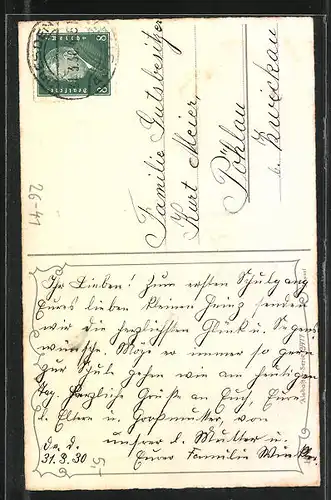 Familie Gutsbesitzer
Kurt Meier,
Pöhlau
b. Zwickau
Ihr Lieben! Zum ersten Schulgang
Eures lieben kleinen Heinz senden
wir die herzlichsten Glück u. Segens-
wünsche. Möge er immer so gern
zur Schule gehen wie am heutigen
Tag. Herzliche Grüße an Euch, Eure
d. Eltern u. Großmutter, von
unsrer l. Mutter u.
31.3.30 Eurer Familie
26-41
5,-
8
Deutsches